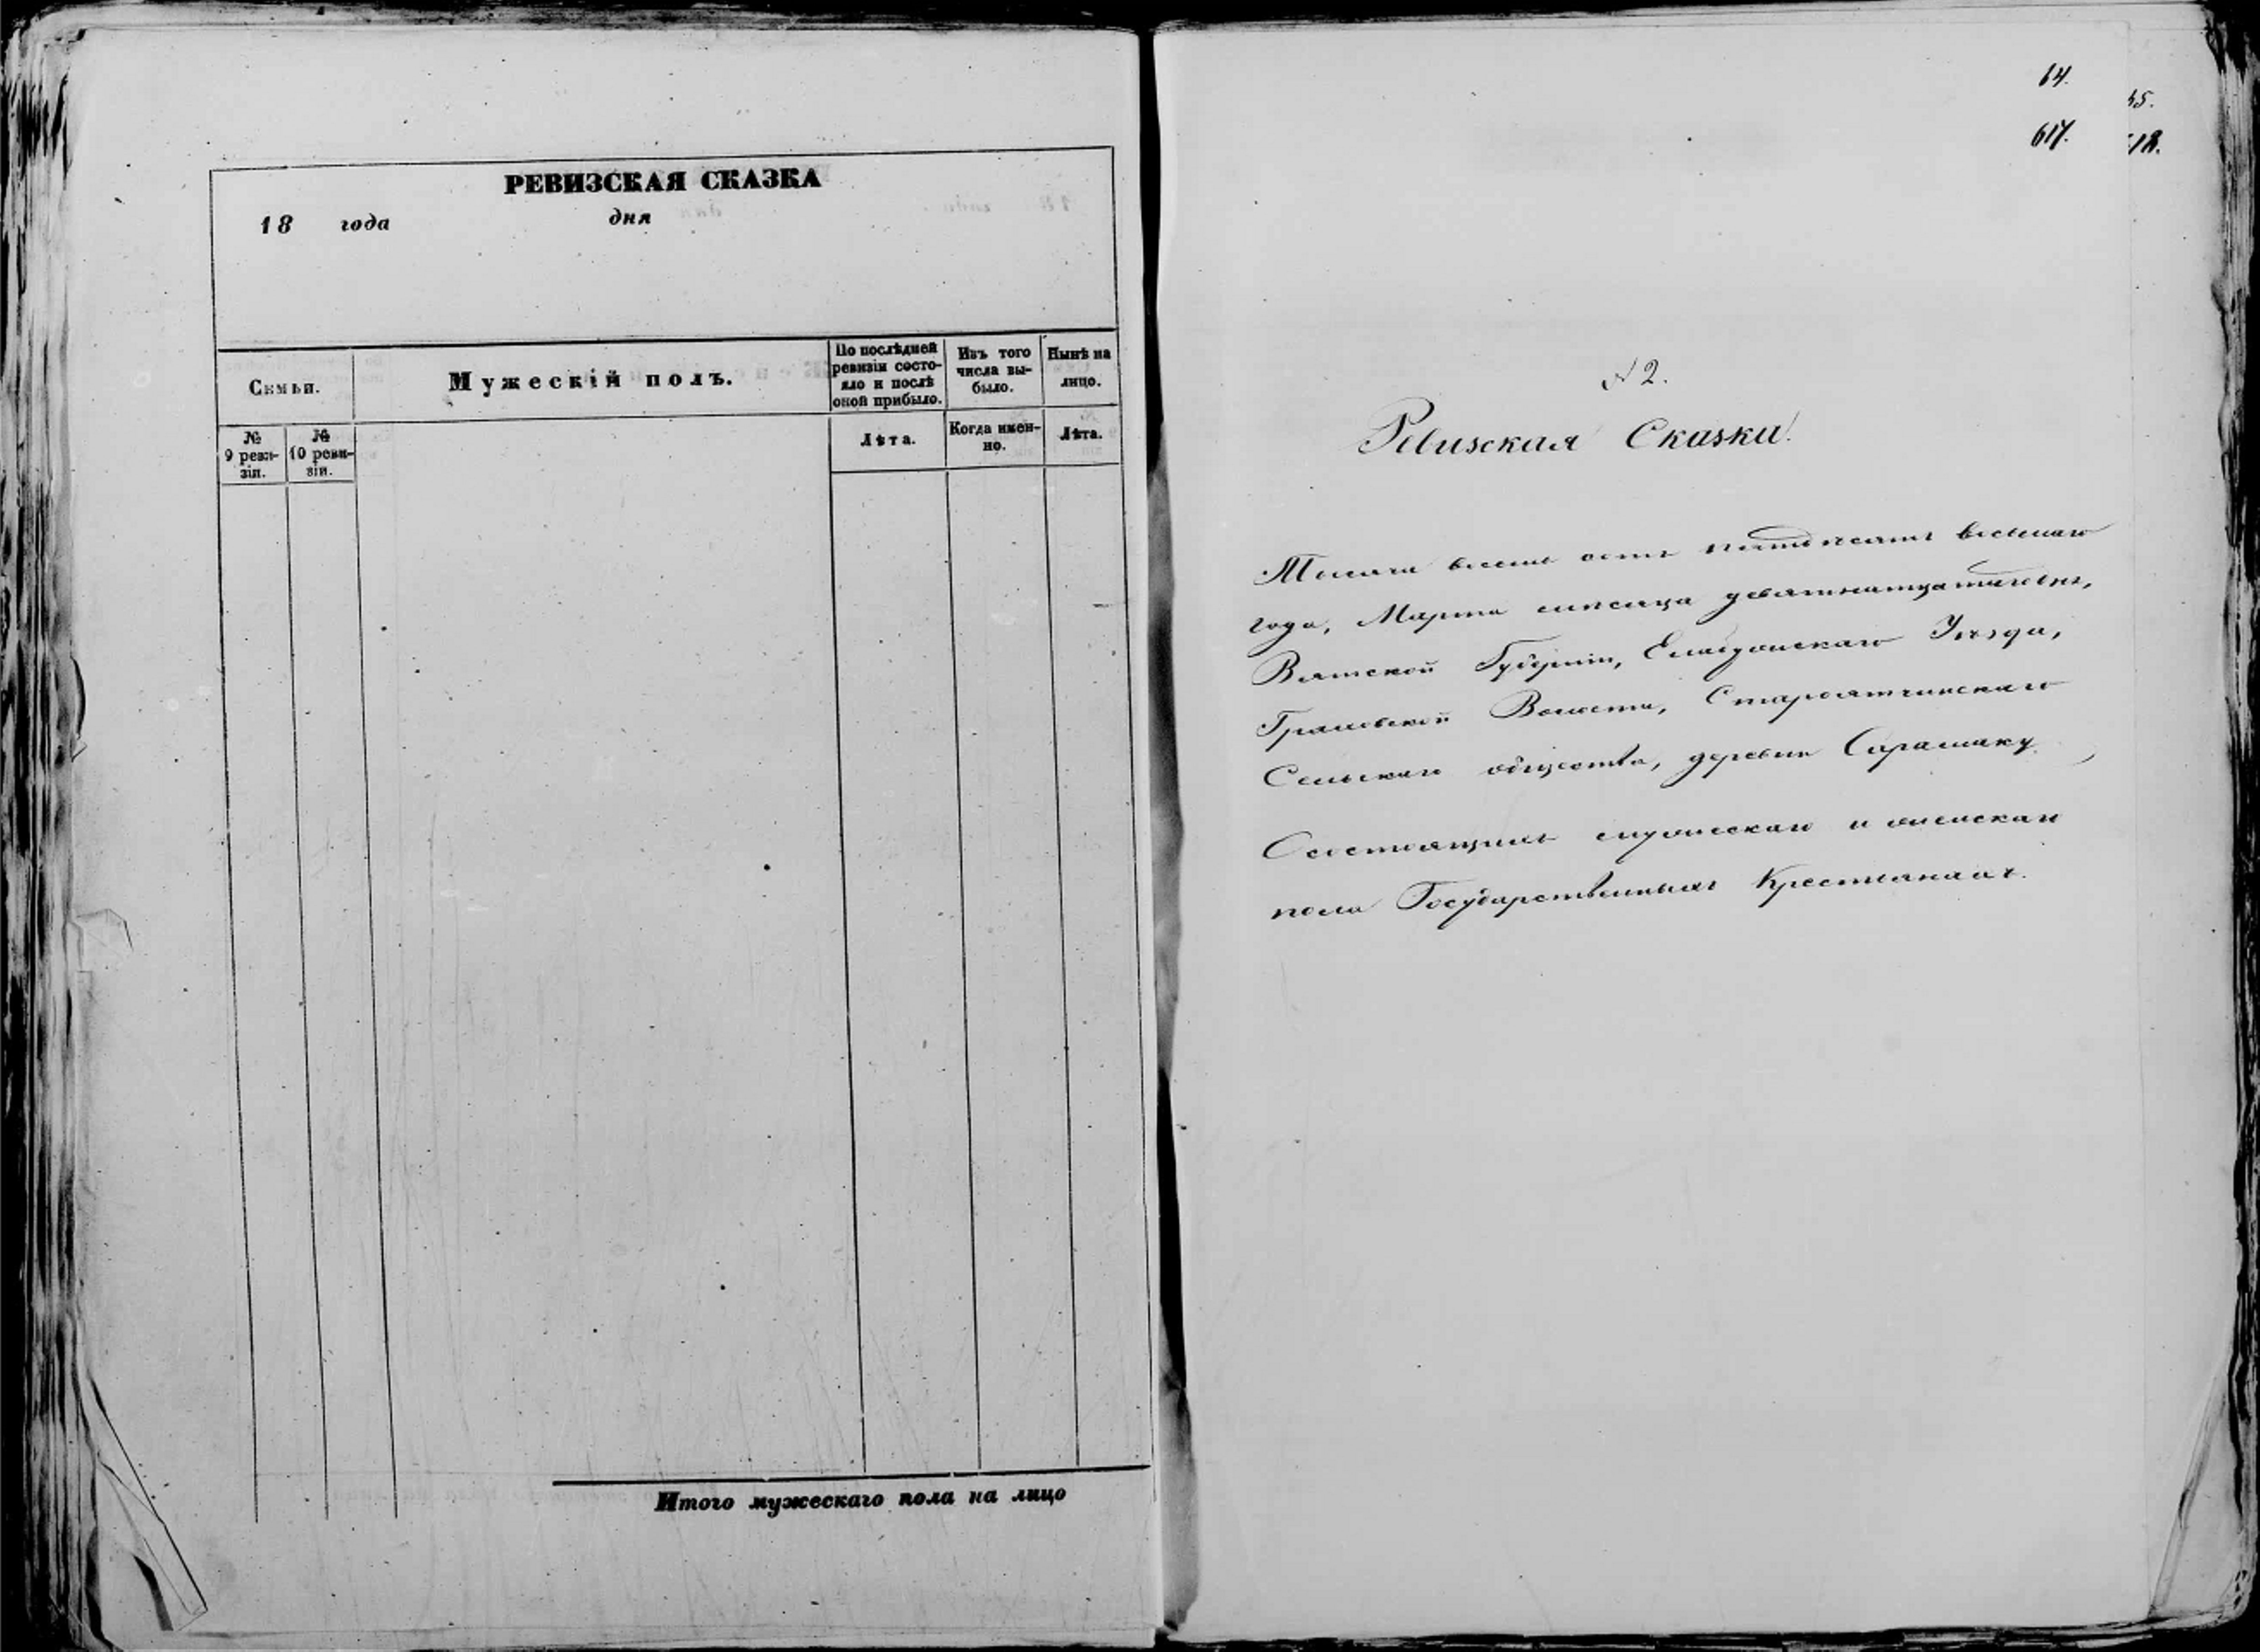 РЕВИЗСКАЯ СКАЗКА
18 года дня
Семьи.
Мужескій полъ.
По послѣдней ревизіи состояло и послѣ оной прибыло.
Изъ того числа выбыло.
Нынѣ на лицо.
№ 9 ревизіи.
№ 10 ревизіи.
Лѣта.
Когда именно.
Лѣта.
Итого мужескаго пола на лицо
64.
617.
№ 2.
Ревизская Сказка.
Тысяча восемь сотъ пятьдесятъ восьмаго
года, Марта мѣсяца девятнатцатаго дня,
Вятской Губерніи, Елабужскаго Уѣзда,
Граховской Волости, Староятчинскаго
Сельскаго общества, деревни Сарамаку
О состоящихъ мужескаго и женскаго
пола Государственныхъ Крестьянахъ.